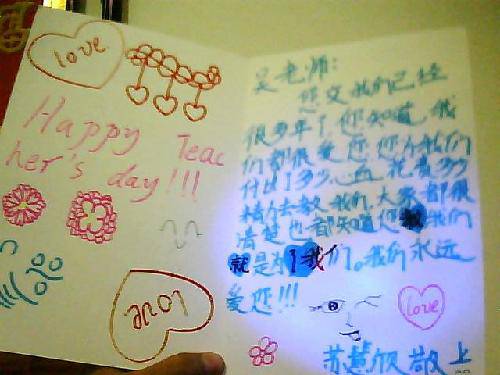 love
Happy Teac
her's day!!!
love
吴老师:
您交我们已经
很多年了,您知道,我
们都很爱您,您为我们
付出了多少心血,花费多少
精力去教我们,大家都很
清楚也都知道您我们
就是为了我们。我们永远
爱您!!!
love
苏慧欣 敬上